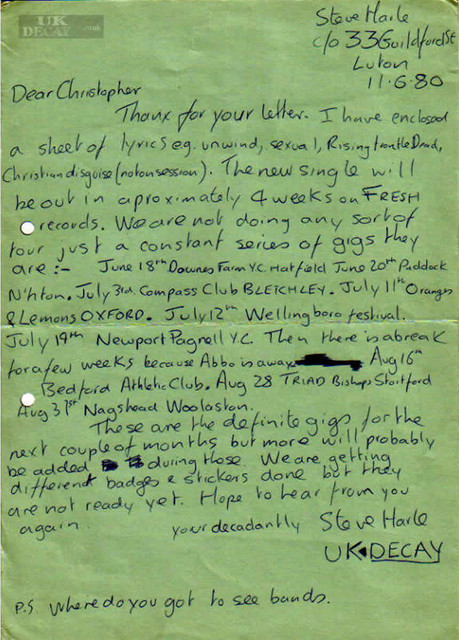 UK
DECAY.co.uk
Steve Harle
c/o 33 Guildford St
Luton
11.6.80
Dear Christopher
Thanx for your letter. I have enclosed
a sheet of lyrics eg. unwind, sexual, Rising from the Dead,
Christian disguise (not on session). The new single will
be out in aproximately 4 weeks on FRESH
records. We are not doing any sort of
tour just a constant series of gigs they
are :- June 18th Downes Farm Y.C. Hatfield June 20th Paddock
N'hton. July 3rd. Compass Club BLETCHLEY. July 11th Oranges
& Lemons OXFORD. July 12th Wellingboro festival.
July 19th Newport Pagnell Y.C. Then there is a break
for a few weeks because Abbo is away Aug 16th
Bedford Athletic Club. Aug 28 TRIAD Bishops Stortford
Aug 31st Nagshead Woolaston.
These are the definite gigs for the
next couple of months but more will probably
be added during those. We are getting
different badges & stickers done but they
are not ready yet. Hope to hear from you
again. your decadantly Steve Harle
UK DECAY
P.S. Where do you got to see bands.